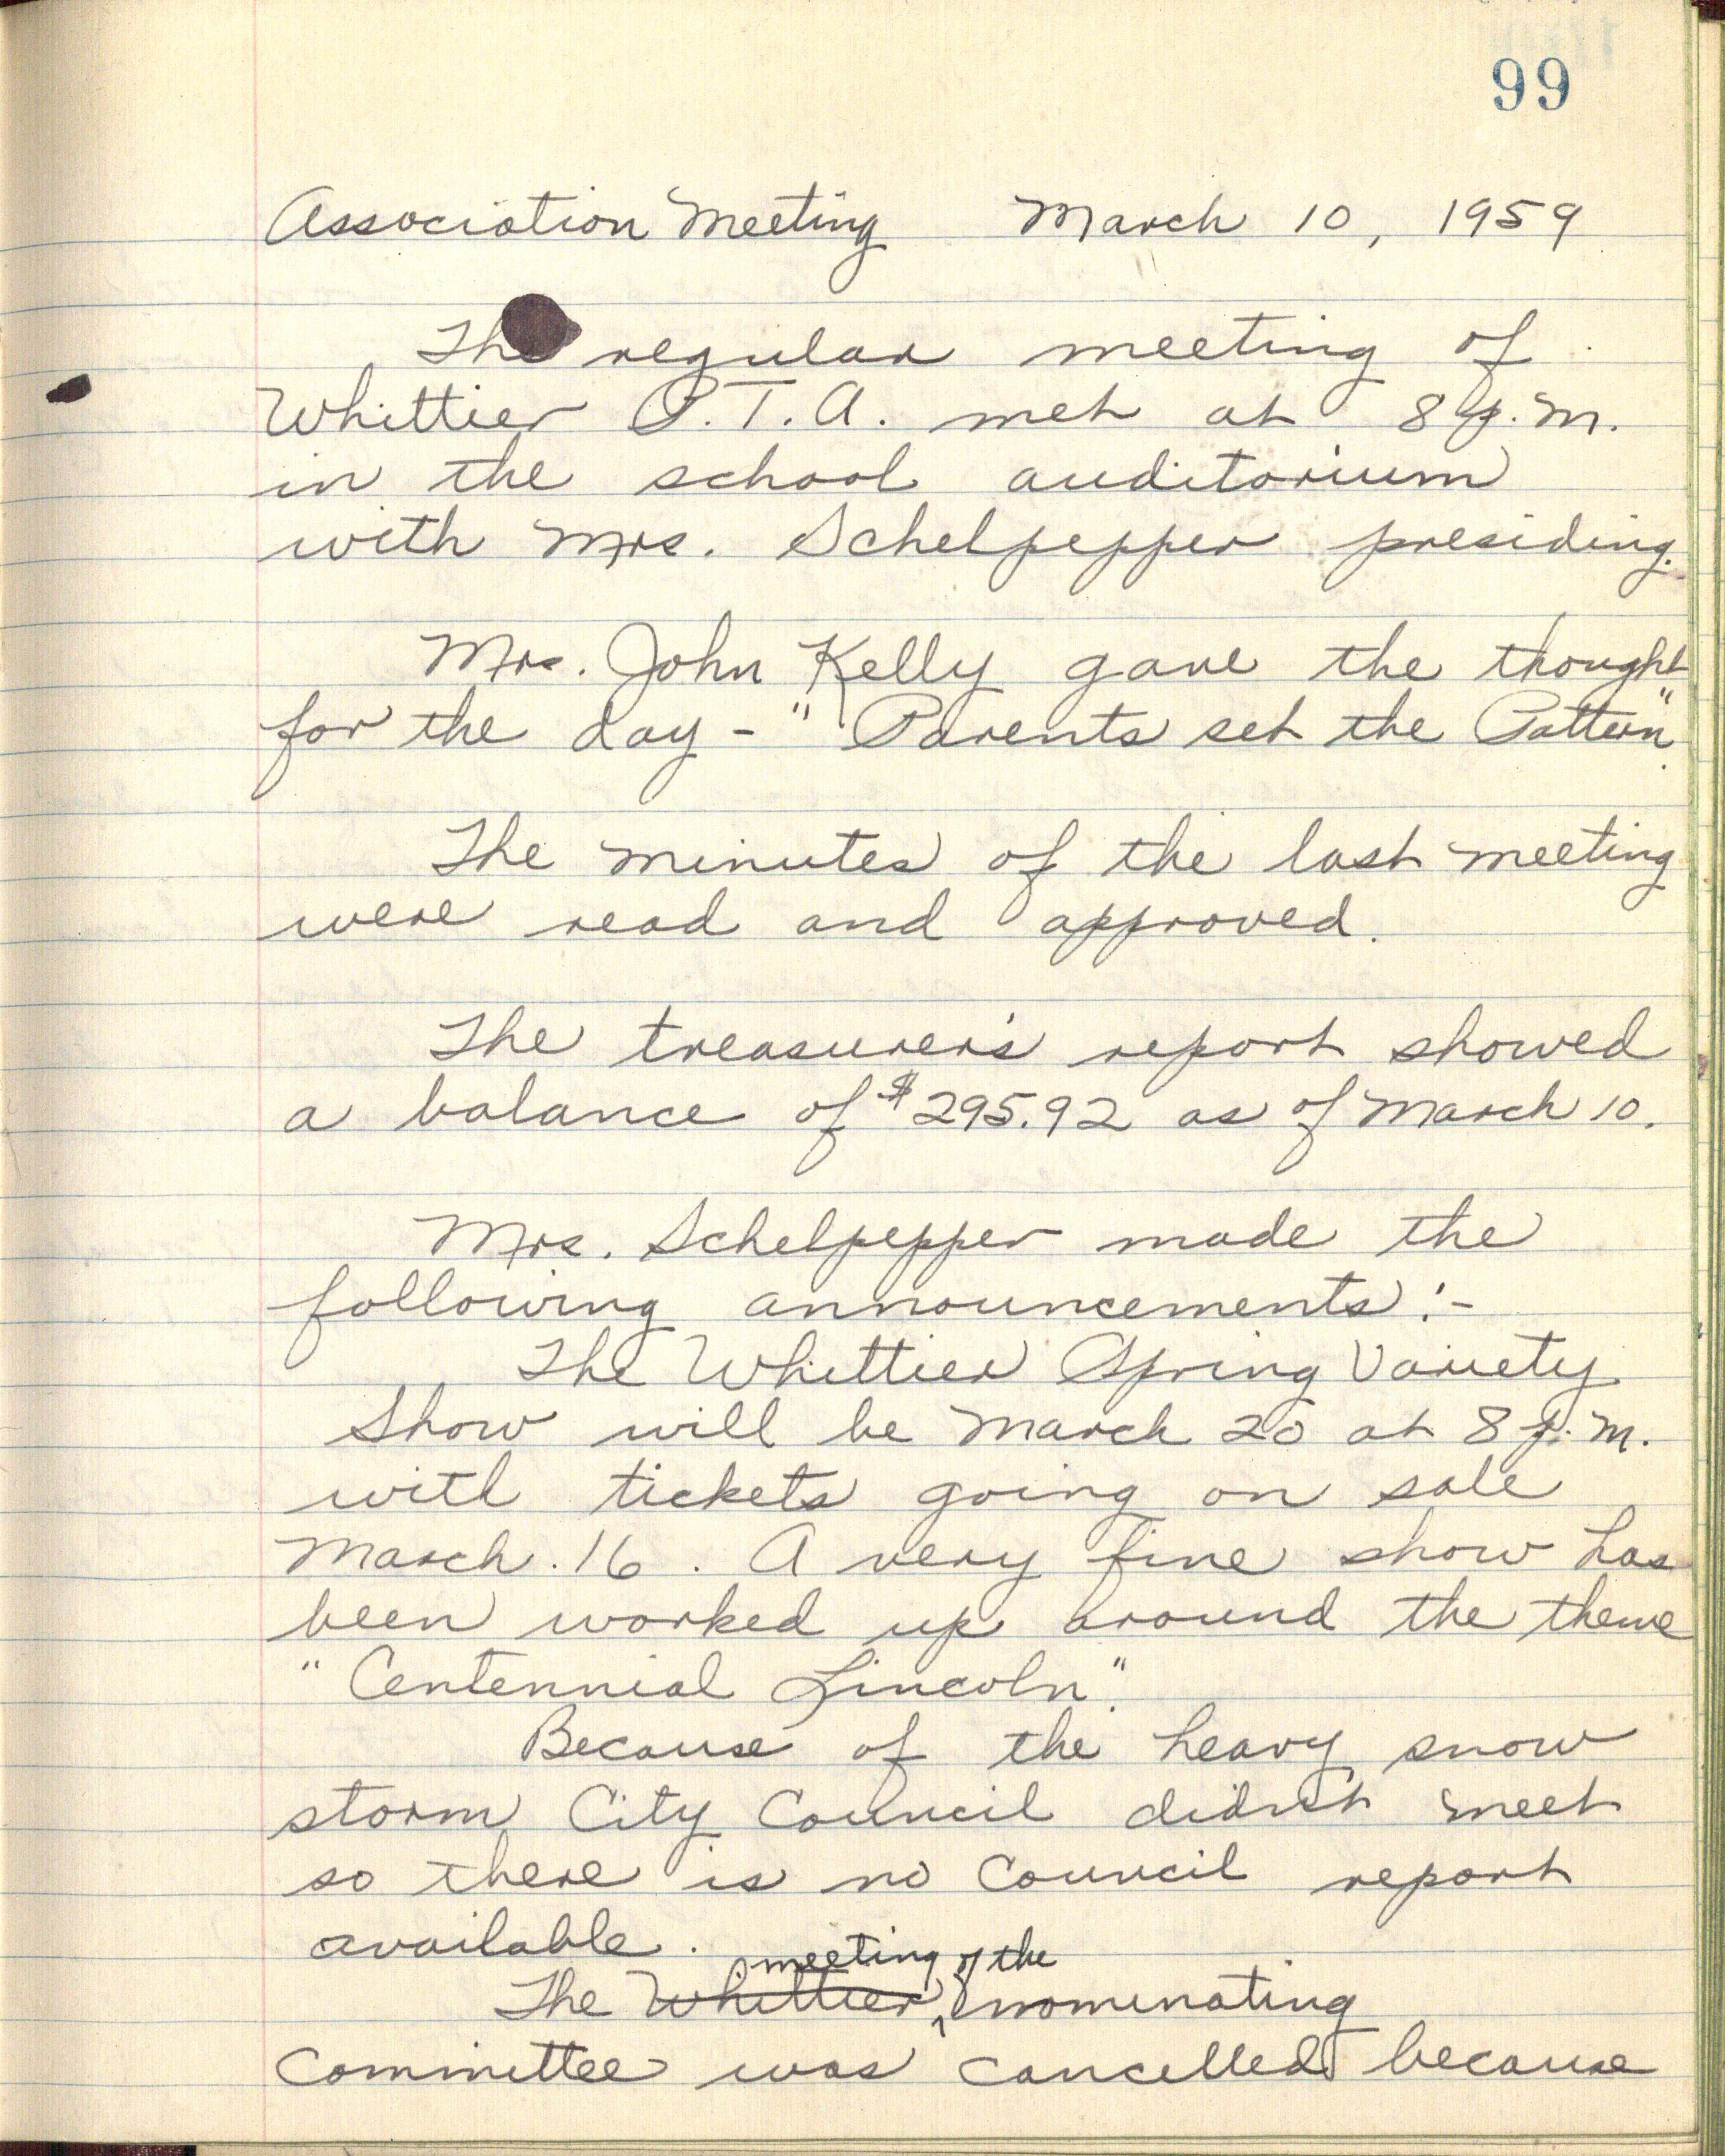 99
Association Meeting March 10, 1959
The regular meeting of
Whittier P.T.A. met at 8 p.m.
in the school auditorium
with Mrs. Schelpepper presiding.
Mrs. John Kelly gave the thought
for the day - "Parents set the Pattern".
The minutes of the last meeting
were read and approved.
The treasurer's report showed
a balance of $295.92 as of March 10.
Mrs. Schelpepper made the
following announcements:-
The Whittier Spring Variety
Show will be March 20 at 8 p.m.
with tickets going on sale
March 16. A very fine show has
been worked up around the theme
"Centennial Lincoln".
Because of the heavy snow
storm City Council didn't meet
so there is no Council report
available.
meeting of the
The Whittier nominating
Committee was cancelled because